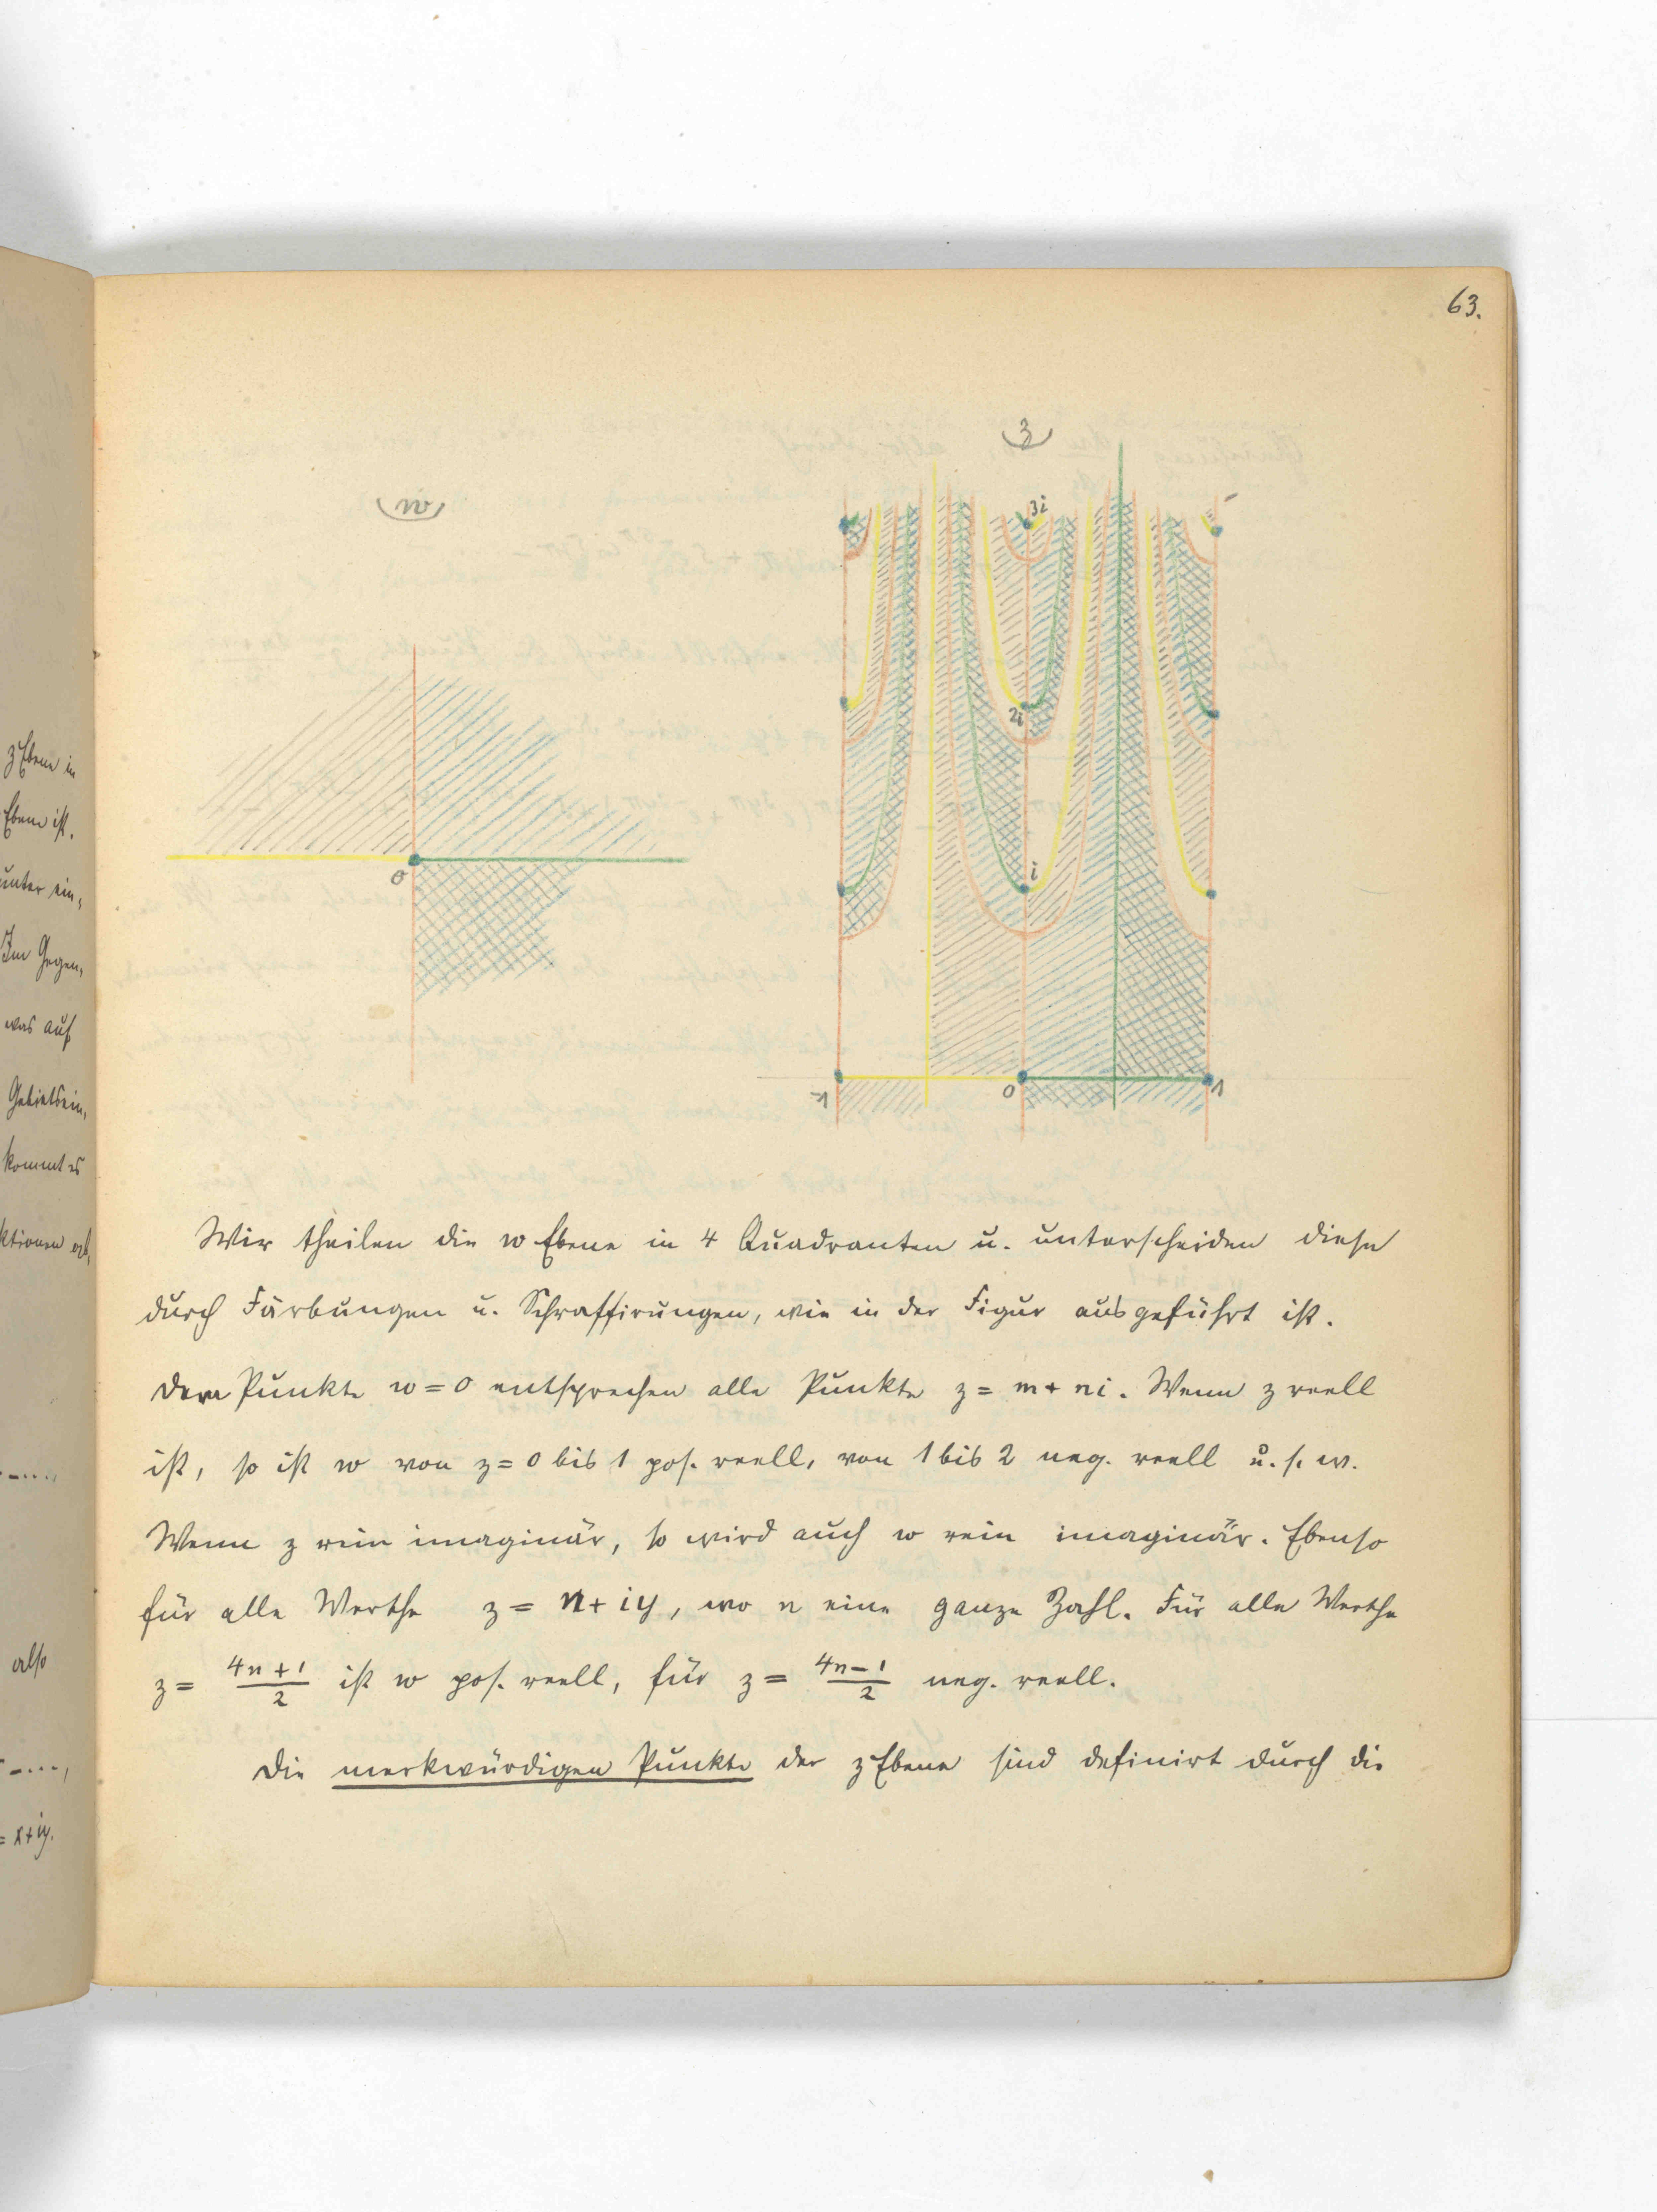 63.
(w)
(z)
3i
2i
i
0
-1
0
1
z Ebene in
Ebene ist.
unter ein-
Im Gegen-
was auf
Gebietsein-
kommt es
ktionen
also
= x+iy.
Wir theilen die w Ebene in 4 Quadranten u. unterscheiden diese
durch Färbungen u. Schraffirungen, wie in der Figur ausgeführt ist.
Dem Punkte w = 0 entsprechen alle Punkte z = m + ni. Wenn z reell
ist, so ist w von z = 0 bis 1 pos. reell, von 1 bis 2 neg. reell u. s. w.
Wenn z rein imaginär, so wird auch w rein imaginär. Ebenso
für alle Werthe z = n + iy, wo n eine ganze Zahl. Für alle Werthe
z = (4n + 1)/2 ist w pos. reell, für z = (4n - 1)/2 neg. reell.
Die merkwürdigen Punkte der z Ebene sind definirt durch die